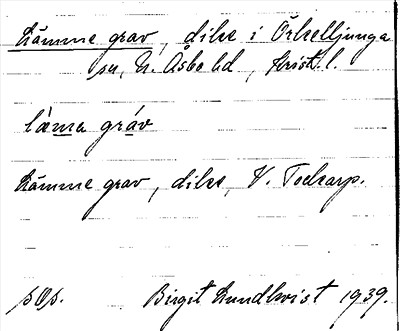 Lämme grav, dike i Örkelljunga
sn, N. Åsbo hd, Krist. l.
läma gráv
Lämme grav, dike, V. Tockarp.
sOs. Birgit Lundkvist 1939.